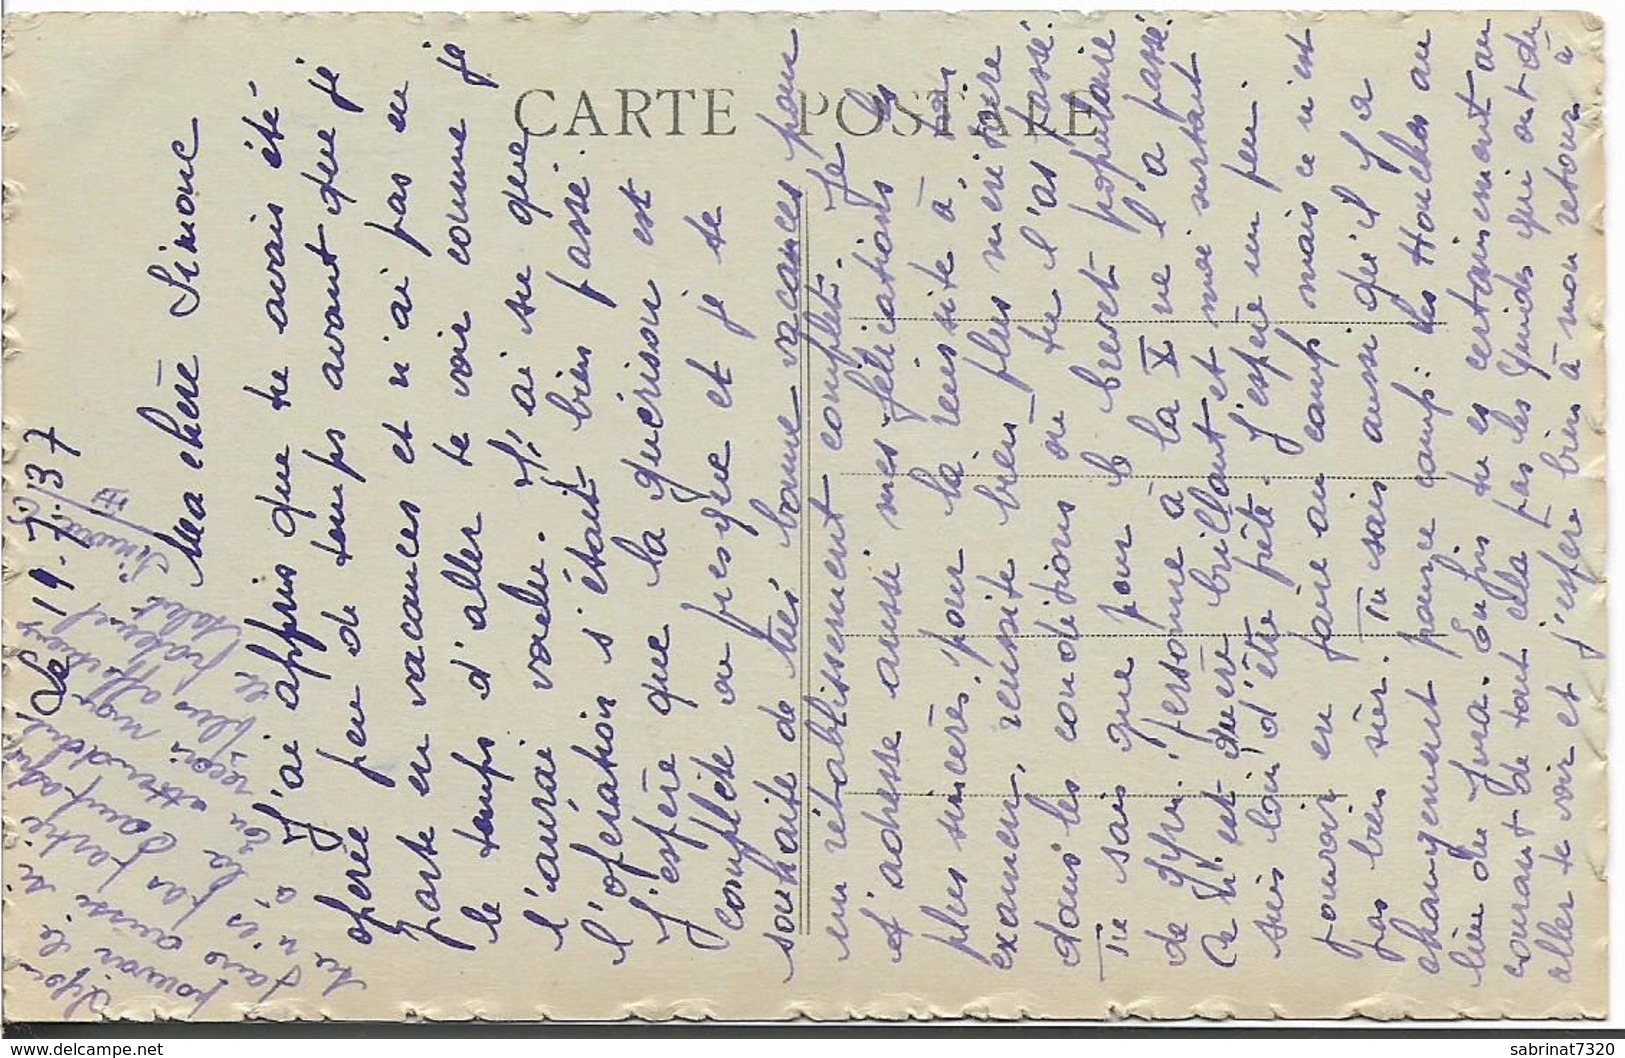 CARTE POSTALE
Le 19-7-37
Ma chère Simone
J'ai appris que tu avais été
opérée peu de temps avant que je
parte en vacances et n'ai pas eu
le temps d'aller te voir comme je
l'aurai voulu. J'ai su que
l'opération s'étant bien passé.
J'espère que la guérison est
complète ou presque et je te
souhaite de très bonne vacances pour
un rétablissement complet. Je
t'adresse aussi mes félications les
plus sincères, pour la réussite à ton
examen, reussite bien plus méritoire
dans les conditions ou tu l'as passé.
Tu sais que pour le brevet propétaire
de gym. personne à la X ne l'a passé.
Ce n'est guère brillant et moi surtant
suis loin d'être prête. J'espère un peu
pouvoir en faire au camp mais ce n'est
pas bien sûr. Tu sais aussi qu'il y a
changement pour ce camp: les Houches au
lieu du Jura. Enfin tu es certainement au
courant de tout cela par les guides qui ont du
aller te voir et j'espère bien à mon retour à
Lyon
pouvoir le
faire aussi si
tu n'es pas partie
à la campagne
En attendant,
reçois mon
plus affectueux
et fraternel
salut
Simone
sabrinat7320